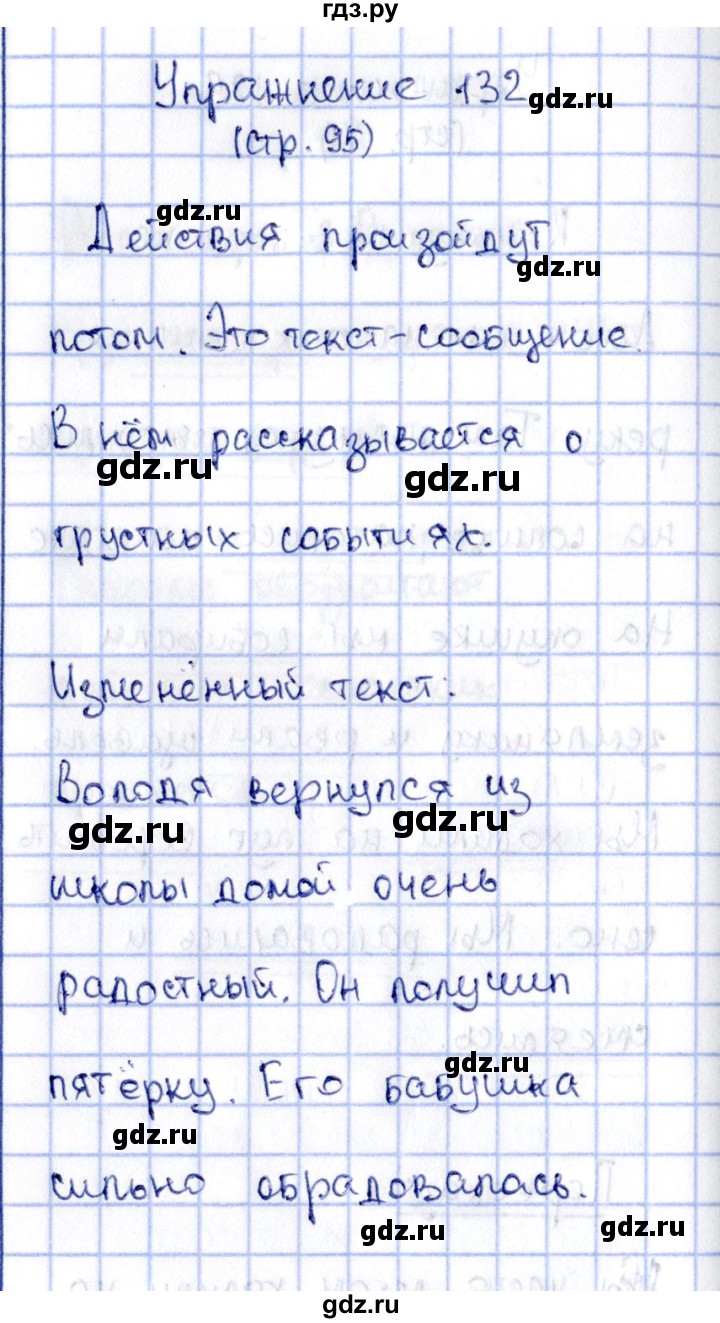 гдз.ру
Упражнение 132
gdz.ru
(стр. 95)
gdz.ru
Действия произойдут
gdz.ru
потом. Это текст-сообщение.
В нём рассказывается о
gdz.ru
gdz.ru
грустных событиях.
Изменённый текст:
Володя вернулся из
gdz.ru
gdz.ru
школы домой очень
радостный. Он получил
gdz.ru
пятёрку. Его бабушка
gdz.ru
сильно обрадовалась.
gdz.ru
gdz.ru
gdz.ru